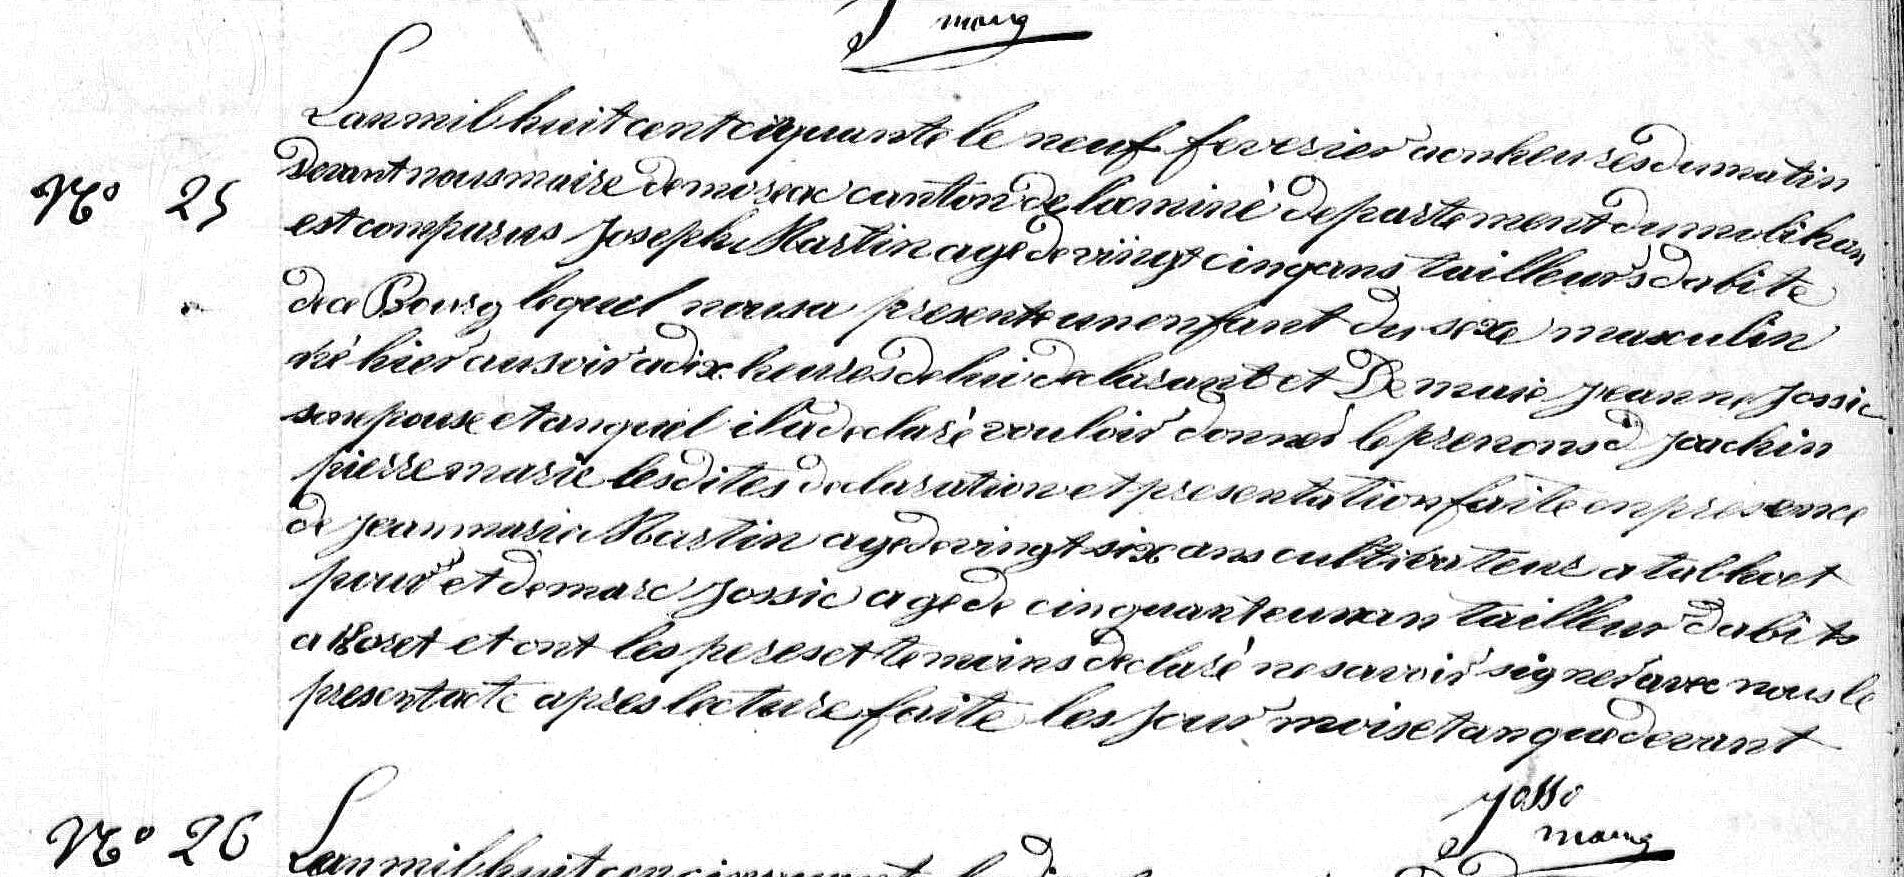 maire
Lan mil huit cent ciquante le neuf feverier a onheures du matin
Devant nous maire de moreac canton de locminé departement du molihan
N° 25
est comparus Joseph Martin age de viingt cinq ans tailleurs dabite
de ce Bourg lequel nous a presente un enfant du sexe masculin
né hier au soir a dix heures de lui declarant et De marie jeanne Jossic
son epouse et auquel il a declaré vouloir donner le prenons d Joachin
pierre marie les dites declaration et presentation faite en presence
de jean marie Martin age de vingt six ans cultivateur a talhoet
et de marc Jossic age de cinquante un an tailleur dabits
a et ont les peres et temoins declaré ne savoir signer avec nous le
present acte apres lecture faite les jour mois et an que devant
Josso
maire
N° 26
Lan mil huit cen